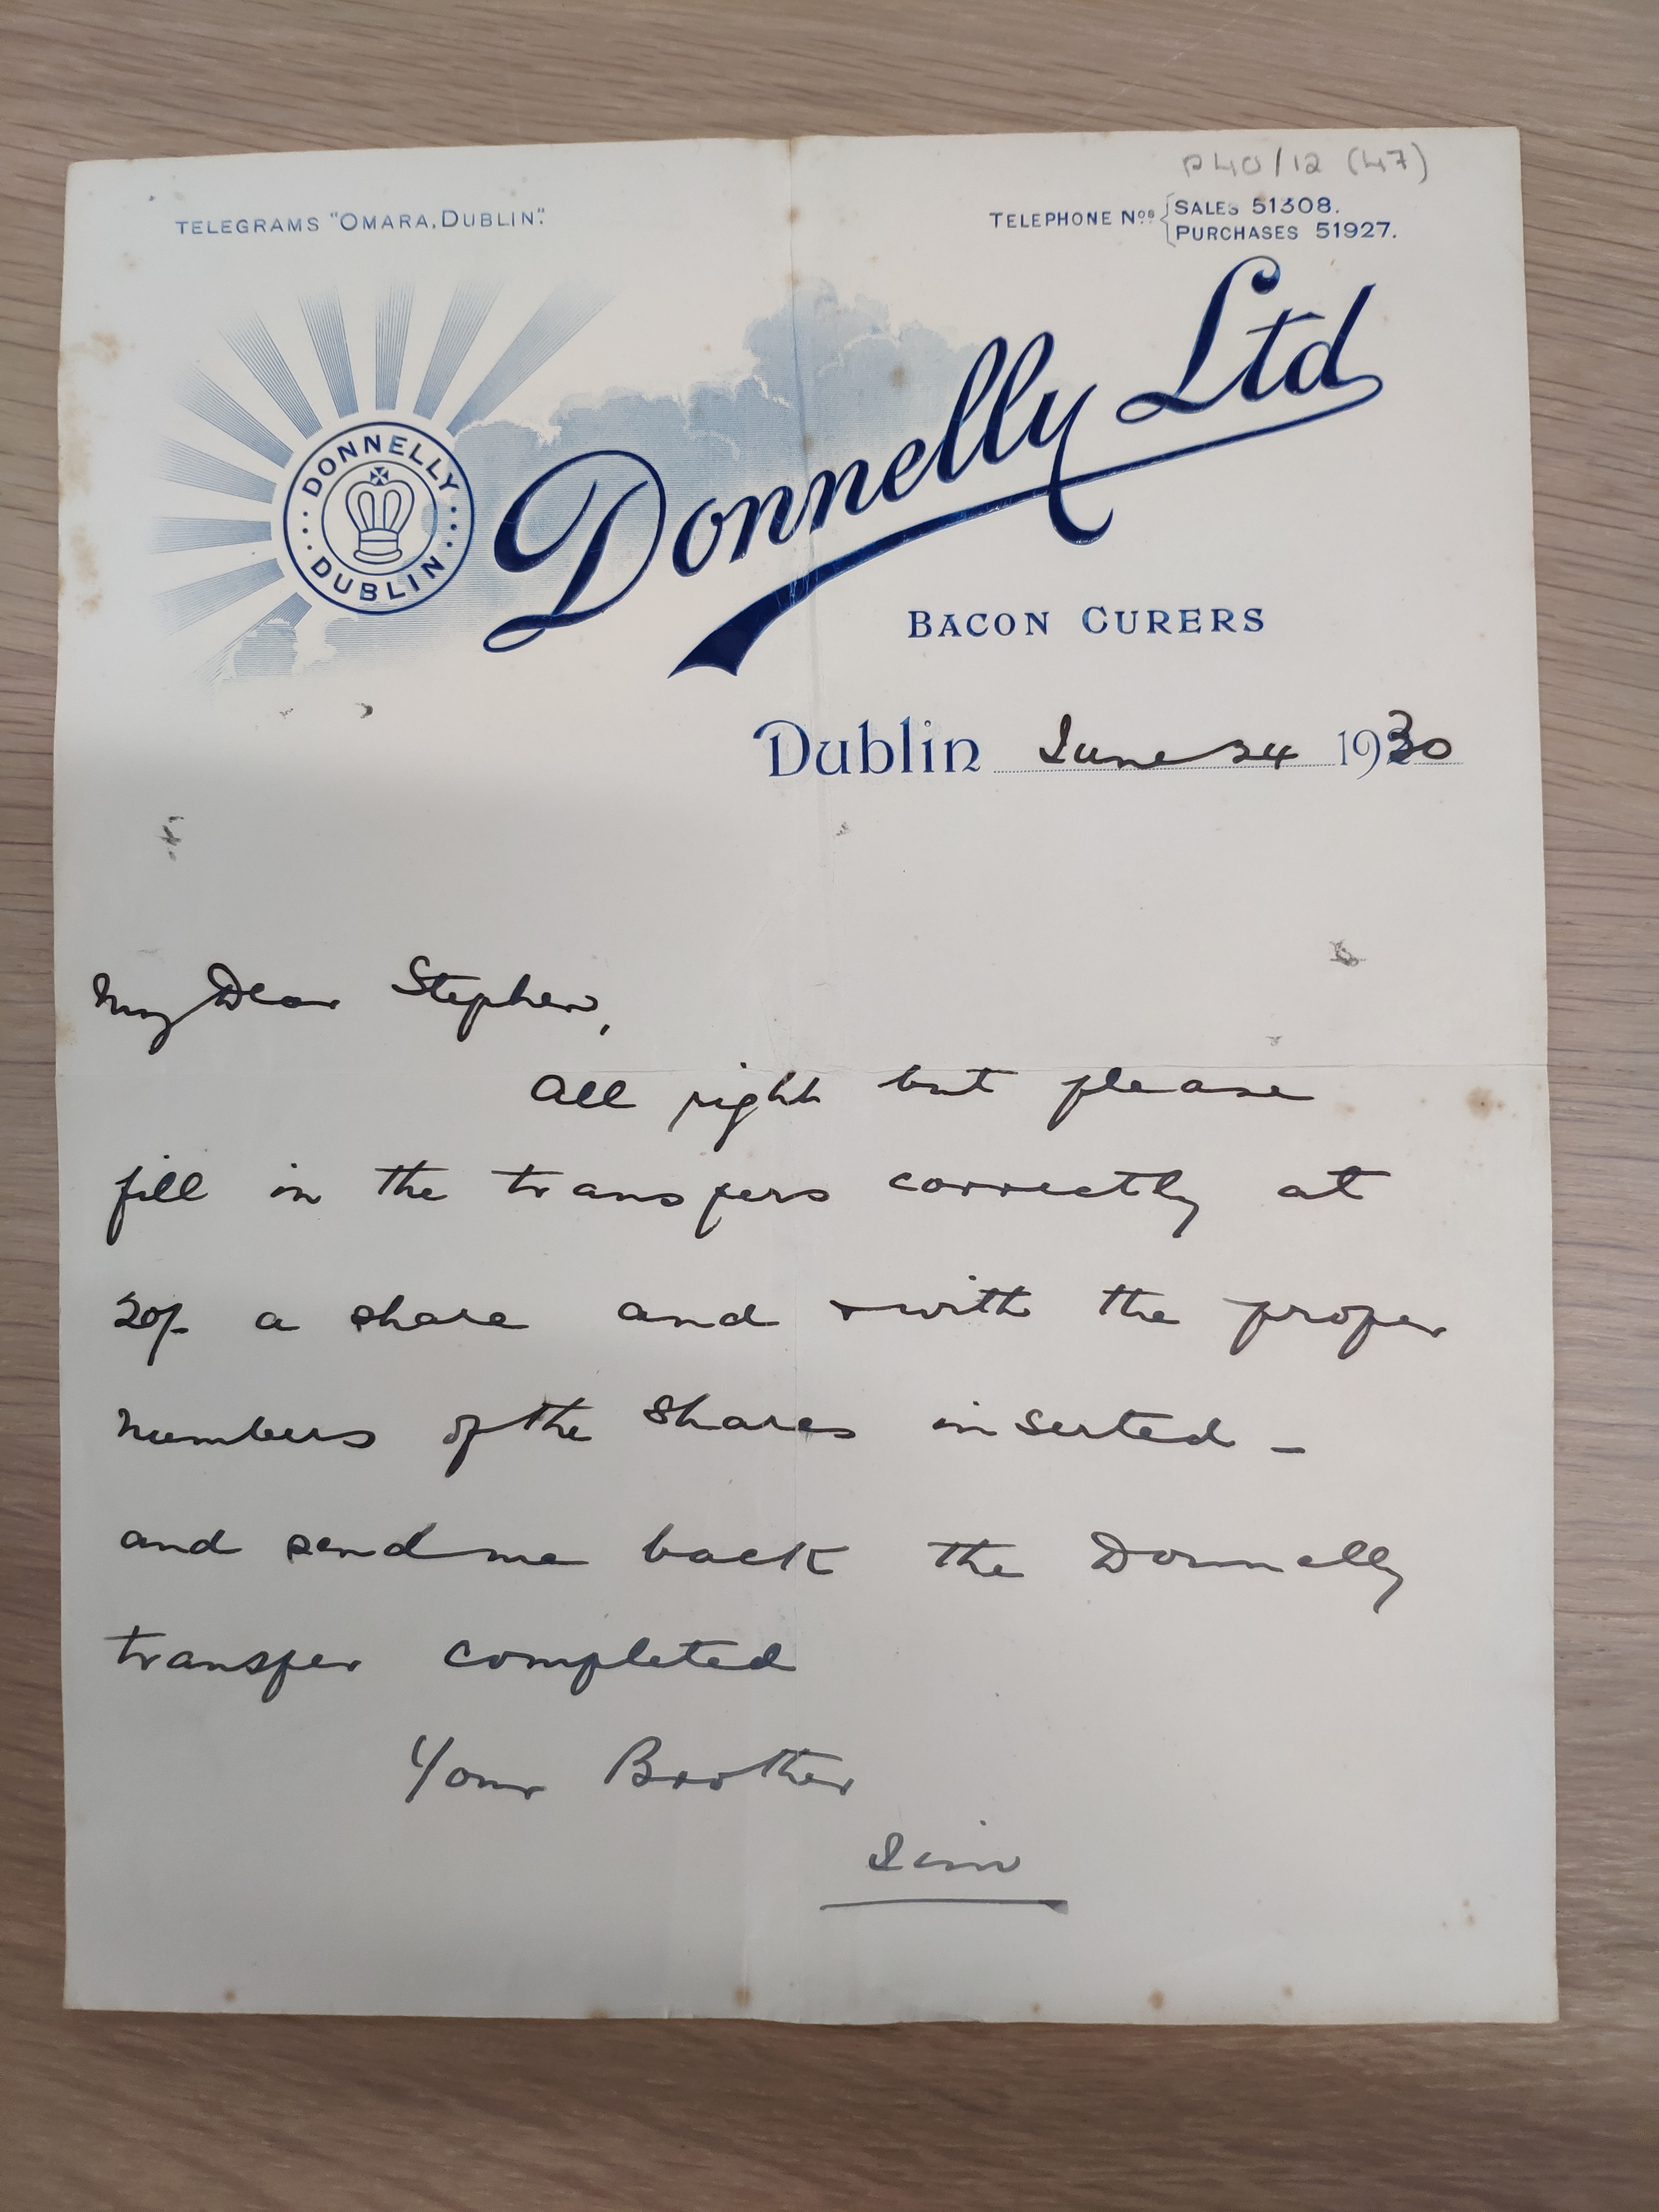 P40/12 (47)
TELEGRAMS "OMARA, DUBLIN".
TELEPHONE Nos { SALES 51308.
PURCHASES 51927.
DONNELLY
DUBLIN
Donnelly Ltd
BACON CURERS
Dublin June 24 1930
My Dear Stephen,
All right but please
fill in the transfers correctly at
20/- a share and with the proper
numbers of the shares inserted -
and send me back the Donnelly
transfer completed
Your Brother
Jim